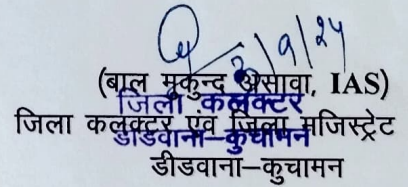 3/9/24
(बाल मुकुन्द असावा, IAS)
जिला कलक्टर
जिला कलक्टर एवं जिला मजिस्ट्रेट
डीडवाना–कुचामन
डीडवाना–कुचामन